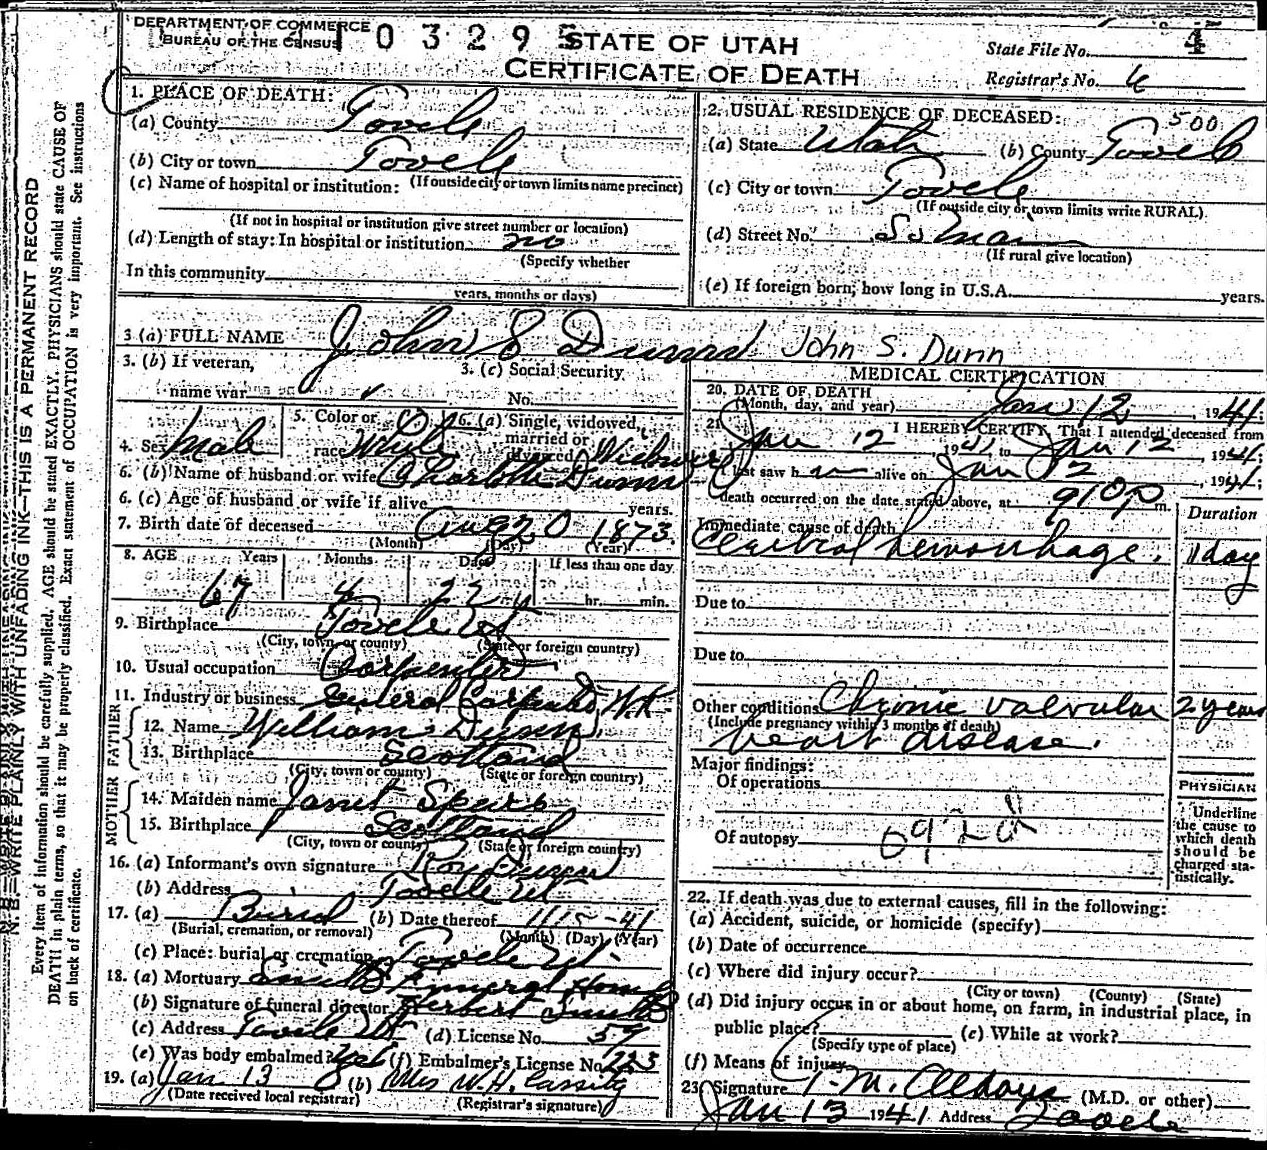 DEPARTMENT OF COMMERCE
BUREAU OF THE CENSUS
0 3 2 9 5
STATE OF UTAH
CERTIFICATE OF DEATH
State File No. 4
Registrar's No. 6
N. B.—WRITE PLAINLY WITH UNFADING INK—THIS IS A PERMANENT RECORD
Every item of information should be carefully supplied. AGE should be stated EXACTLY. PHYSICIANS should state CAUSE OF
DEATH in plain terms, so that it may be properly classified. Exact statement of OCCUPATION is very important. See instructions
on back of certificate.
1. PLACE OF DEATH:
(a) County Tooele
(b) City or town Tooele
(If outside city or town limits name precinct)
(c) Name of hospital or institution:
(If not in hospital or institution give street number or location)
(d) Length of stay: In hospital or institution no
(Specify whether
In this community
years, months or days)
2. USUAL RESIDENCE OF DECEASED: 500
(a) State Utah (b) County Tooele
(c) City or town Tooele
(If outside city or town limits write RURAL)
(d) Street No. So Main
(If rural give location)
(e) If foreign born, how long in U.S.A. years.
3 (a) FULL NAME John S Dunn John S. Dunn
3. (b) If veteran,
name war
3. (c) Social Security
No.
4. Sex Male
5. Color or
race White
6. (a) Single, widowed,
married or
divorced Widower
6. (b) Name of husband or wife Charlotte Dunn
6. (c) Age of husband or wife if alive years.
7. Birth date of deceased Aug 20 1873
(Month) (Day) (Year)
8. AGE Years Months Days If less than one day
67 4 22 hr. min.
9. Birthplace Tooele Ut
(City, town or county) (State or foreign country)
10. Usual occupation Carpenter
11. Industry or business General Carpenter Wk
FATHER
12. Name William Dunn
13. Birthplace Scotland
(City, town or county) (State or foreign country)
MOTHER
14. Maiden name Janet Spears
15. Birthplace Scotland
(City, town or county) (State or foreign country)
16. (a) Informant's own signature Roy Dunn
(b) Address Tooele Ut
17. (a) Burial (b) Date thereof 1 15 -41
(Burial, cremation, or removal) (Month) (Day) (Year)
(c) Place: burial or cremation Tooele Ut
18. (a) Mortuary Smith Funeral Home
(b) Signature of funeral director Herbert Smith
(c) Address Tooele Ut (d) License No. 59
(e) Was body embalmed? Yes (f) Embalmer's License No. 223
19. (a) Jan 13 (b) Mrs W. H. Cassity
(Date received local registrar) (Registrar's signature)
MEDICAL CERTIFICATION
20. DATE OF DEATH
(Month, day, and year) Jan 12, 1941;
21. I HEREBY CERTIFY, That I attended deceased from
Jan 12 1941 to Jan 12, 1941;
I last saw h im alive on Jan 12, 1941;
death occurred on the date stated above, at 910 p m.
Duration
Immediate cause of death
Cerebral hemorrhage. 1 day
Due to
Due to
Other conditions Chronic valvular 2 years
(Include pregnancy within 3 months of death)
heart disease.
Major findings:
Of operations
Of autopsy
PHYSICIAN
Underline
the cause to
which death
should be
charged sta-
tistically.
22. If death was due to external causes, fill in the following:
(a) Accident, suicide, or homicide (specify)
(b) Date of occurrence
(c) Where did injury occur?
(City or town) (County) (State)
(d) Did injury occur in or about home, on farm, in industrial place, in
public place? (e) While at work?
(Specify type of place)
(f) Means of injury
23. Signature M. (M.D. or other)
Jan 13 1941 Address Tooele